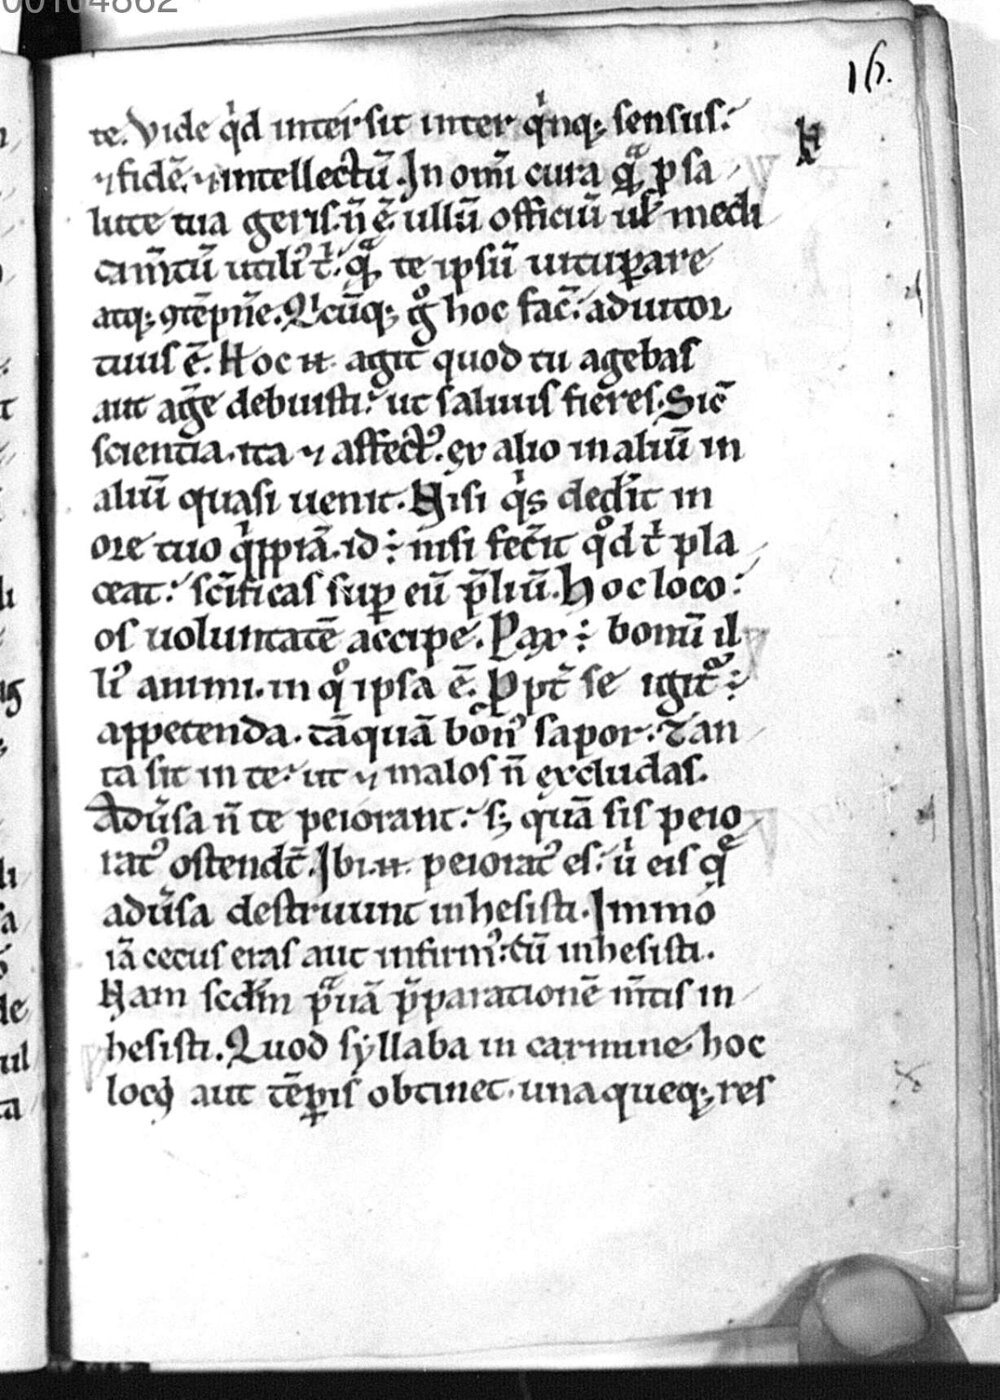 00164862
16.
te. Vide qͥd intersit inter qͥnq; sensus.
⁊ fidē. ⁊ intellectū. In om̄i cura qͣ ꝓ sa
lute tua geris. n̄ ē ullū officiū ul̓ medi
cam̄tū utiliꝰ tͥ. qͣ te ipsū uituꝑare
atq; ꝯtēpn̄e. Qͥcūq; gͦ hoc fac̄. adiutor
tuus ē. Hoc n̄ agit quod tu agebas
aut aḡe debuisti. ut saluus fieres. Sic̄
scientia. ita ⁊ affectꝰ. ex alio in aliū in
aliū quasi uenit. Nisi qͥs ded̄it in
ore tuo qͥppiā. id ÷ nisi fec̄it qͦd tͥ pla
ceat. sc̄ificas suꝑ eū p̄liū. Hoc loco.
os uoluntatē accipe. Pax ÷ bonū il
liꝰ animi. in qͦ ipsa ē. Ꝓpt̄ se igit᷑ ÷
appetenda. tāquā bon̄ꝰ sapor. Tan
ta sit in te. ut ⁊ malos n̄ excludas.
Adūsa n̄ te peiorant. s; quā sis peio
ratꝰ ostendt̄. Ibi n̄ peioratꝰ es. uͥ eis qͣ
adūsa destruunt inhesisti. Immo
iā cecus eras aut infirmꝰ. cū inhesisti.
Nam scd̄m pͣuā p̄parationē m̄tis in
hesisti. Quod syllaba in carmine hoc
locͥ aut tēꝑis obtinet. una queq; res